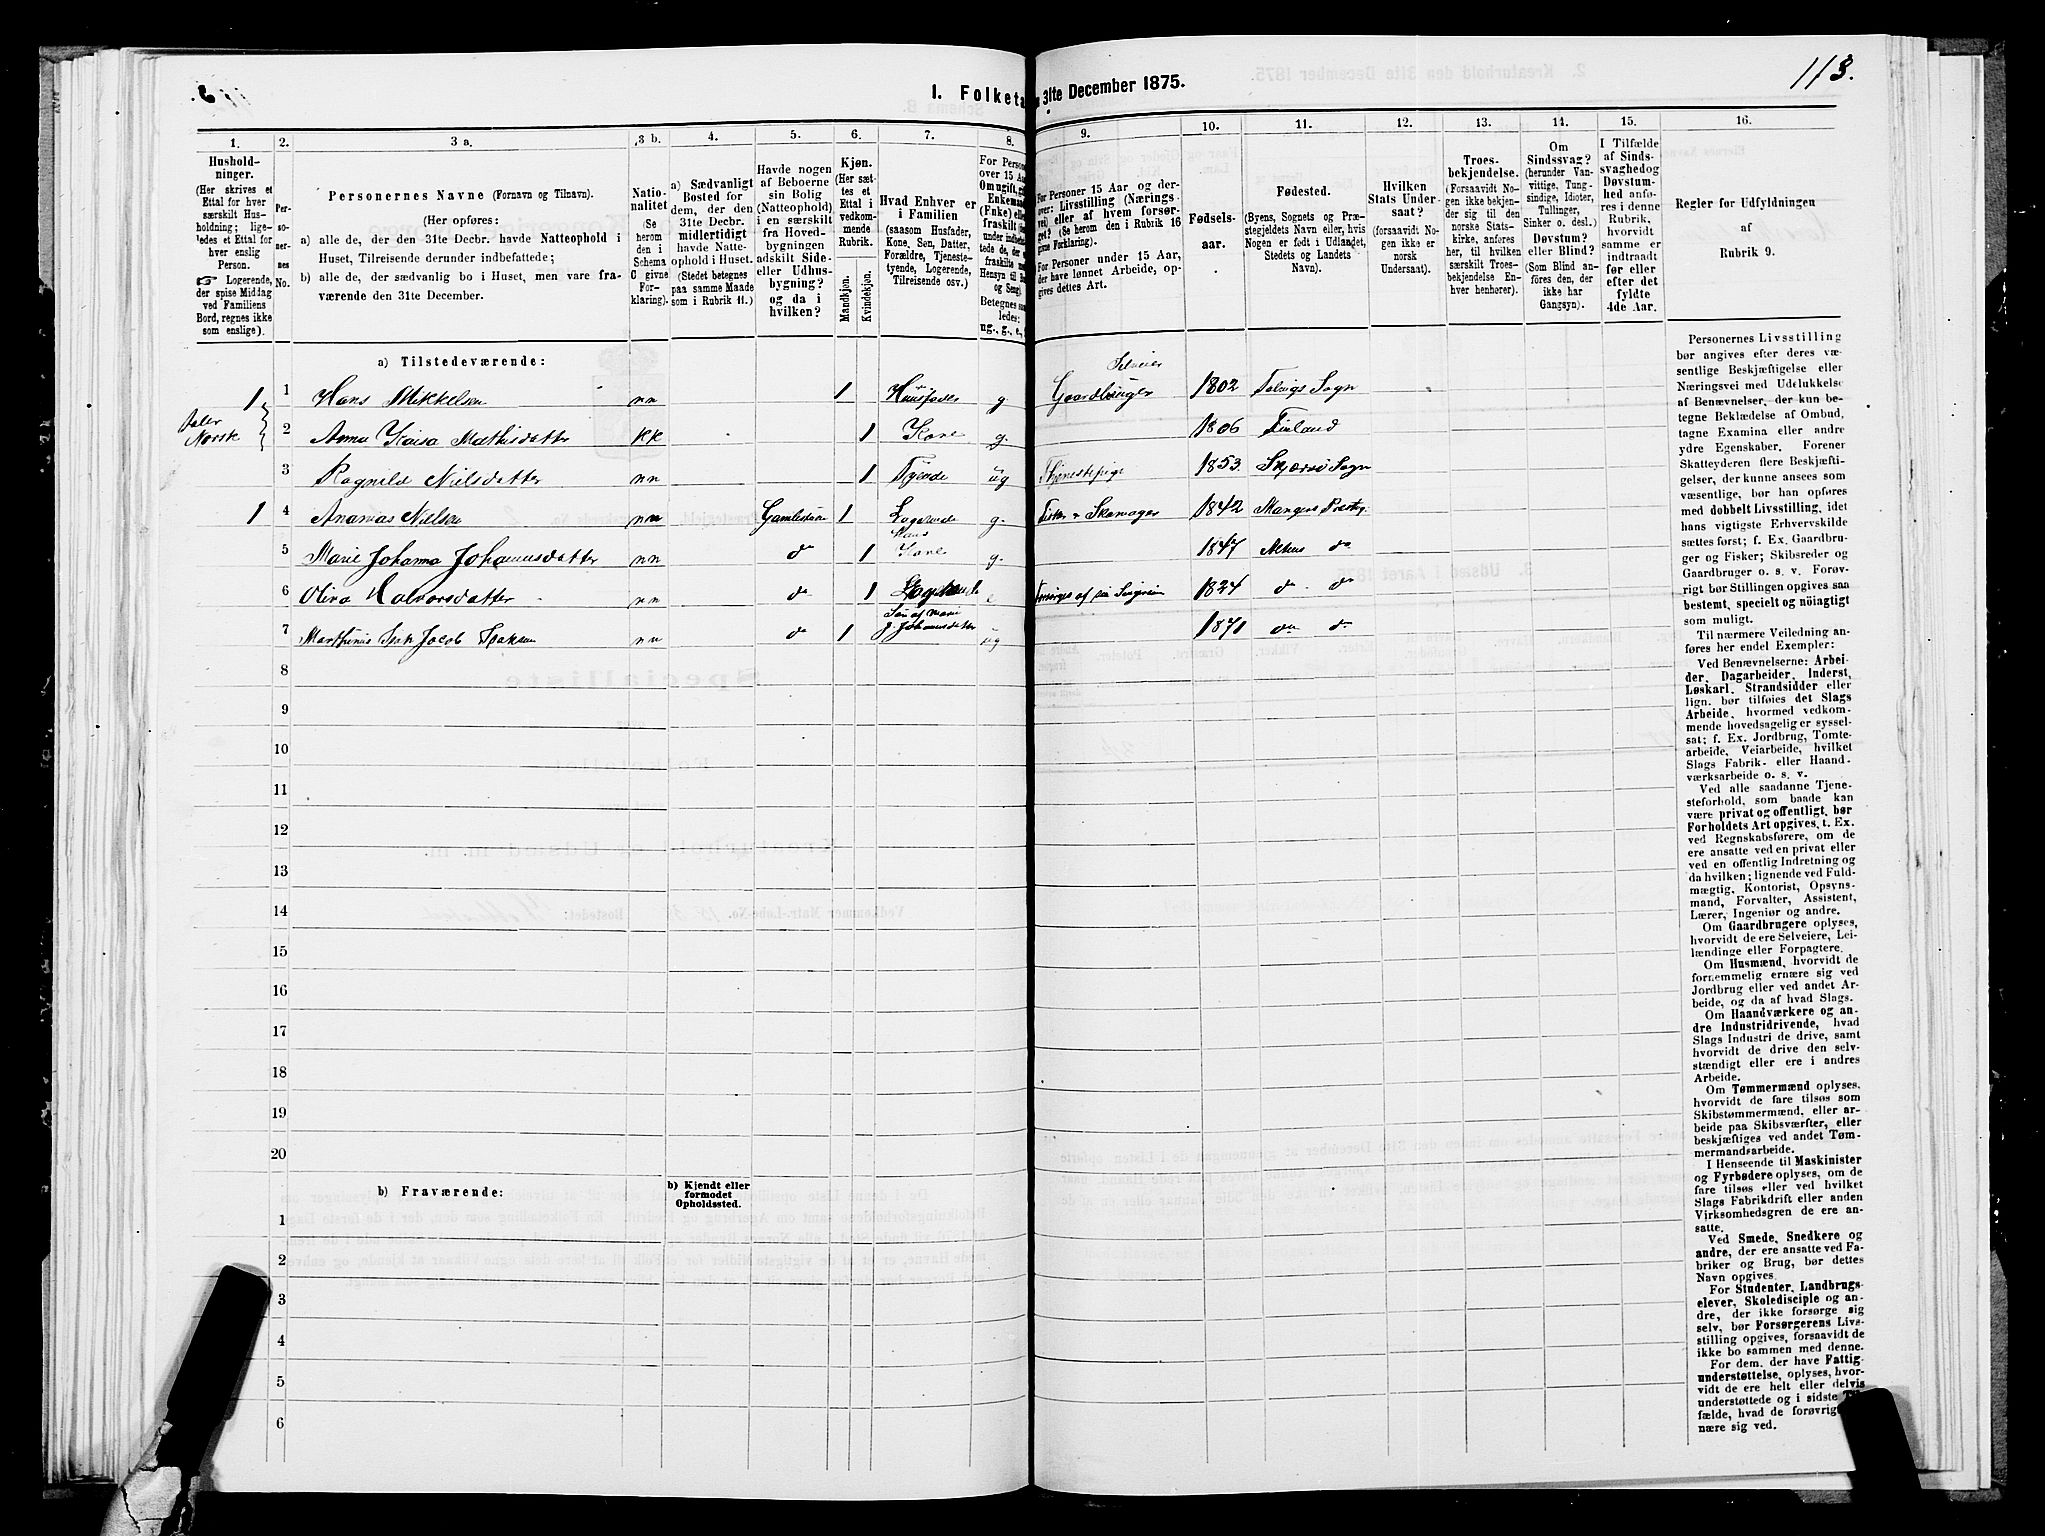 I. Folketælling 31te December 1875.
113.
1. 2. 3 a. 3 b. 4. 5. 6. 7. 8. 9. 10. 11. 12. 13. 14. 15. 16.
Hushold-
ninger.
(Her skrives et
Ettal for hver
særskilt Hus-
holdning; lige-
ledes et Ettal for
hver enslig
Person.
☞ Logerende,
der spise Middag
ved Familiens
Bord, regnes ikke
som enslige).
Per-
so-
ner-
nes
No.
Personernes Navne (Fornavn og Tilnavn).
(Her opføres:
a) alle de, der den 31te Decbr. havde Natteophold i
Huset, Tilreisende derunder indbefattede;
b) alle de, der sædvanlig bo i Huset, men vare fra-
værende den 31te December.
Natio-
nalitet
(Se
herom
den i
Schema
C givne
For-
klaring).
a) Sædvanligt
Bosted for
dem, der den
31te Decbr.
midlertidigt
havde Natte-
ophold i Huset.
(Stedet betegnes
paa samme Maade
som i Rubrik 11.)
Havde nogen
af Beboerne
sin Bolig
(Natteophold)
i en særskilt
fra Hoved-
bygningen
adskilt Side-
eller Udhus-
bygning?
og da i
hvilken?
Kjøn.
(Her sæt-
tes et
Ettal i
vedkom-
mende
Rubrik.
Mandkjøn.
Kvindekjøn.
Hvad Enhver er
i Familien
(saasom Husfader,
Kone, Søn, Datter,
Forældre, Tjeneste-
tyende, Logerende,
Tilreisende osv.)
For Person
over 15 Aar
Om ugift,
Enkemand
(Enke) eller
fraskilt
Betegnes saa-
ledes:
ug., g., e.,
For Personer 15 Aar og der-
over: Livsstilling (Nærings-
vei) eller af hvem forsør-
get? (Se herom den i Rubrik 16
givne Forklaring.)
For Personer under 15 Aar,
der have lønnet Arbeide, op-
gives dettes Art.
Fødsels-
aar.
Fødested.
(Byens, Sognets og Præ-
stegjeldets Navn eller, hvis
Nogen er født i Udlandet,
Stedets og Landets
Navn).
Hvilken
Stats Under-
saat?
(forsaavidt No-
gen ikke er
norsk
Undersaat).
Troes-
bekjendelse.
(Forsaavidt No-
gen ikke bekjen-
der sig til den
norske Stats-
kirke, anføres
her, til hvilken
særskilt Troes-
bekjendelse En-
hver henhører).
Om
Sindssvag?
(herunder Van-
vittige, Tung-
sindige, Idioter,
Tullinger,
Sinker o. desl.)
Døvstum?
eller Blind?
(Som Blind an-
føres den, der
ikke har
Gangsyn).
I Tilfælde
af Sinds-
svaghed og
Døvstum-
hed anfø-
res i denne
Rubrik,
hvorvidt
samme er
indtraadt
før eller
efter det
fyldte
4de Aar.
Regler for Udfyldningen
af
Rubrik 9.
a) Tilstedeværende:
1 1 Hans Mikkelsen nn 1 Huusfader g Gaardbruger Selveier 1802 Talvigs Sogn
taler Norsk 2 Anna Kaisa Mathisdatter kk 1 Kone g. 1806 Finland
3 Ragnild Nielsdatter nn 1 Tyende ug Tjenestepige 1853 Skjervø Sogn
1 4 Ananias Nielsen nn Gamlestuen 1 Logerende g. Fisker & Skomager 1842 Mangers Prestg.
5 Marie Johanna Johannesdatter nn do 1 Hans Kone g. 1847 Altens do
6 Oliva Halvorsdatter nn do 1 Logerende e 1824 do do
7 Marthinius Jacob Isaksen nn do 1 Søn af Marie J. Johannesdatter ug 1871 do do
8
9
10
11
12
13
14
15
16
17
18
19
20
b) Fraværende:
b) Kjendt eller
formodet
Opholdssted.
1
2
3
4
5
6
Personernes Livsstilling
bør angives efter deres væ-
sentlige Beskjæftigelse eller
Næringsvei med Udelukkelse
af Benævnelser, der kun be-
tegne Beklædelse af Ombud,
tagne Examina eller andre
ydre Egenskaber. Forener
Skatteyderen flere Beskjæfti-
gelser, der kunne ansees som
væsentlige, bør han opføres
med dobbelt Livsstilling, idet
hans vigtigste Erhvervskilde
sættes først; f. Ex. Gaardbru-
ger og Fisker; Skibsreder og
Gaardbruger o. s. v. Forøv-
rigt bør Stillingen opgives saa
bestemt, specielt og nøiagtig
som muligt.
Til nærmere Veiledning an-
føres her endel Exempler:
Ved Benævnelserne: Arbei-
der, Dagarbeider, Inderst,
Løskarl, Strandsidder eller
lign. bør tilføies det Slags
Arbeide, hvormed vedkom-
mende hovedsagelig er syssel-
sat; f. Ex. Jordbrug, Tomte-
arbeide, Veiarbeide, hvilket
Slags Fabrik- eller Haand-
værksarbeide o. s. v.
Ved alle saadanne Tjene-
steforhold, som baade kan
være privat og offentligt, bør
Forholdets Art opgives, t. Ex.
ved Regnskabsførere, om de
ere ansatte ved en privat eller
ved en offentlig Indretning og
da hvilken; lignende ved Fuld-
mægtig, Kontorist, Opsyns-
mand, Forvalter, Assistent,
Lærer, Ingeniør og andre.
Om Gaardbrugere oplyses,
hvorvidt de ere Selveiere, Lei-
lændinge eller Forpagtere.
Om Husmænd, hvorvidt de
fornemmelig ernære sig ved
Jordbrug eller ved andet Ar-
beide, og da af hvad Slags.
Om Haandværkere og an-
dre Industridrivende, hvad
Slags Industri de drive, samt
hvorvidt de drive den selv-
stændigt eller ere i andres
Arbeide.
Om Tømmermænd oplyses,
hvorvidt de fare tilsøs som
Skibstømmermænd, eller ar-
beide paa Skibsværfter, eller
beskjæftiges ved andet Tøm-
mermandsarbeide.
I Henseende til Maskinister
og Fyrbødere oplyses, om de
fare tilsøs eller ved hvilket
Slags Fabrikdrift eller anden
Virksomhedsgren de ere an-
satte.
Ved Smede, Snedkere og
andre, der ere ansatte ved Fa-
briker og Brug, bør dettes
Navn opgives.
For Studenter, Landbrugs-
elever, Skoledisciple og an-
dre, der ikke forsørge sig
selv, bør Forsørgerens Livs-
stilling opgives, forsaavidt de
ikke bo sammen med denne.
For dem, der have Fattig-
understøttelse, oplyses, hvor-
vidt de ere helt eller delvis
understøttede og i sidste Til-
fælde, hvad de forøvrigt
nære sig ved.